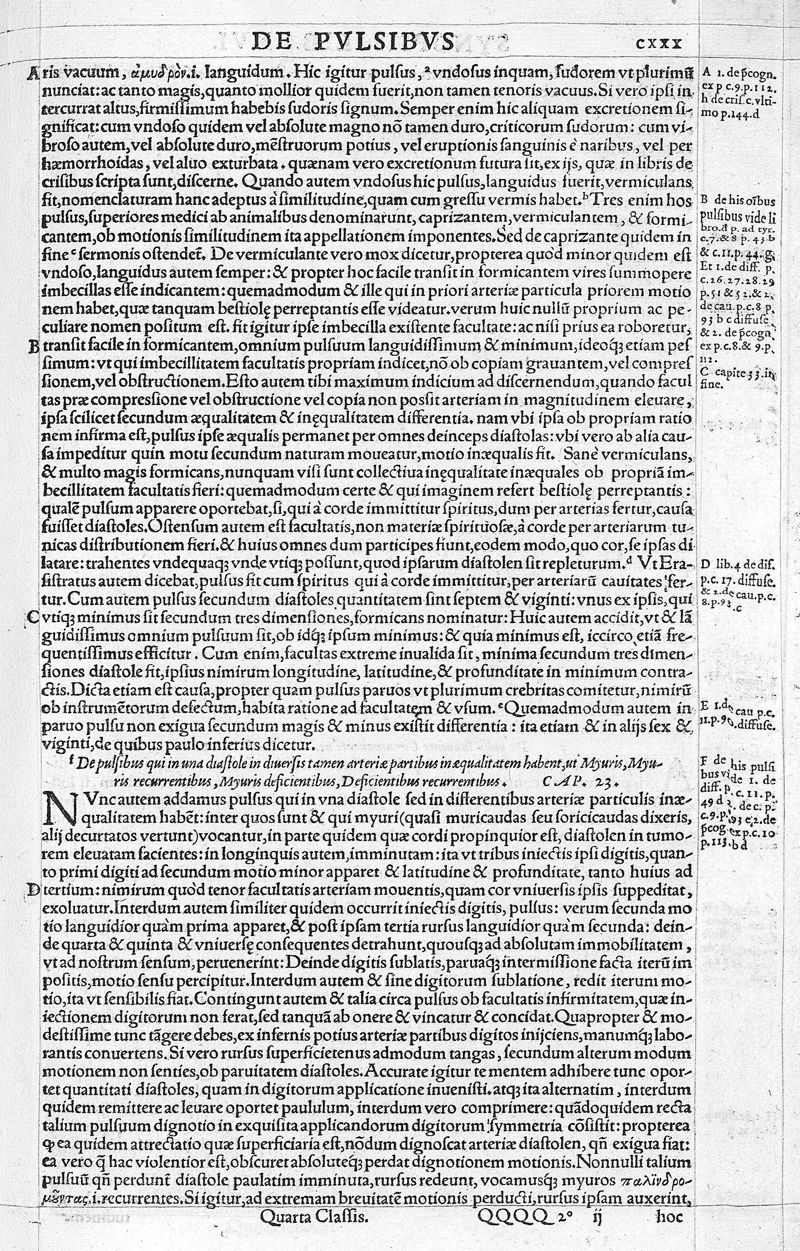 DE PVLSIBVS
CXXX
Aris vacuum, ἀμυδρὸν.i. languidum. Hic igitur pulsus, ᵃ vndosus inquam, sudorem vt plurimũ
nunciat: ac tanto magis, quanto mollior quidem fuerit, non tamen tenoris vacuus. Si vero ipsi in-
tercurrat altus, firmissimum habebis sudoris signum. Semper enim hic aliquam excretionem si-
gnificat: cum vndoso quidem vel absolute magno nõ tamen duro, criticorum sudorum: cum vi-
broso autem, vel absolute duro, mẽstruorum potius, vel eruptionis sanguinis è naribus, vel per
hæmorrhoidas, vel aluo exturbata. quænam vero excretionum futura sit, ex ijs, quæ in libris de
crisibus scripta sunt, discerne. Quando autem vndosus hic pulsus, languidus fuerit, vermiculans
fit, nomenclaturam hanc adeptus à similitudine, quam cum gressu vermis habet. ᵇ Tres enim hos
pulsus, superiores medici ab animalibus denominarunt, caprizantem, vermiculantem, & formi-
cantem, ob motionis similitudinem ita appellationem imponentes. Sed de caprizante quidem in
fine ᶜ sermonis ostendet. De vermiculante vero mox dicetur, propterea quòd minor quidem est
vndoso, languidus autem semper: & propter hoc facile transit in formicantem vires summopere
imbecillas esse indicantem: quemadmodum & ille qui in priori arteriæ particula priorem motio
nem habet, quæ tanquam bestiolę perreptantis esse videatur. verum huic nullũ proprium ac pe-
culiare nomen positum est. fit igitur ipse imbecilla existente facultate: ac nisi prius ea roboretur,
B transit facile in formicantem, omnium pulsuum languidissimum & minimum, ideoq; etiam pes
simum: vt qui imbecillitatem facultatis propriam indicet, nõ ob copiam grauantem, vel compres
sionem, vel obstructionem. Esto autem tibi maximum indicium ad discernendum, quando facul
tas præ compressione vel obstructione vel copia non possit arteriam in magnitudinem eleuare,
ipsa scilicet secundum æqualitatem & inęqualitatem differentia. nam vbi ipsa ob propriam ratio
nem infirma est, pulsus ipse æqualis permanet per omnes deinceps diastolas: vbi vero ab alia cau-
sa impeditur quin motu secundum naturam moueatur, motio inæqualis fit. Sanè vermiculans,
& multo magis formicans, nunquam visi sunt collectiua inęqualitate inæquales ob propriã im-
becillitatem facultatis fieri: quemadmodum certe & qui imaginem refert bestiolę perreptantis:
qualẽ pulsum apparere oportebat, si, qui à corde immittitur spiritus, dum per arterias fertur, causa
fuisset diastoles. Ostensum autem est facultatis, non materiæ spirituosæ, à corde per arteriarum tu-
nicas distributionem fieri. & huius omnes dum participes fiunt, eodem modo, quo cor, se ipsas di
latare: trahentes vndequaq; vnde vtiq; possunt, quod ipsarum diastolen sit repleturum. ᵈ Vt Era-
sistratus autem dicebat, pulsus fit cum spiritus qui à corde immittitur, per arteriarũ cauitates fer-
tur. Cum autem pulsus secundum diastoles quantitatem sint septem & viginti: vnus ex ipsis, qui
C vtiq; minimus sit secundum tres dimensiones, formicans nominatur: Huic autem accidit, vt & lã
guidissimus omnium pulsuum sit, ob idq; ipsum minimus: & quia minimus est, iccirco etiã fre-
quentissimus efficitur. Cum enim, facultas extreme inualida sit, minima secundum tres dimen-
siones diastole fit, ipsius nimirum longitudine, latitudine, & profunditate in minimum contra-
ctis. Dicta etiam est causa, propter quam pulsus paruos vt plurimum crebritas comitetur, nimirũ
ob instrumẽtorum defectum, habita ratione ad facultatem & vsum. ᵉ Quemadmodum autem in
paruo pulsu non exigua secundum magis & minus existit differentia: ita etiam & in alijs sex &
viginti, de quibus paulo inferius dicetur.
ᶠ De pulsibus qui in una diastole in diuersis tamen arteriæ partibus inæqualitatem habent, ut Myuris, Myu-
ris recurrentibus, Myuris deficientibus, Deficientibus recurrentibus. CAP. 23.
NVnc autem addamus pulsus qui in vna diastole sed in differentibus arteriæ particulis inæ-
qualitatem habẽt: inter quos sunt & qui myuri (quasi muricaudas seu soricicaudas dixeris,
alij decurtatos vertunt) vocantur, in parte quidem quæ cordi propinquior est, diastolen in tumo-
rem eleuatam facientes: in longinquis autem, imminutam: ita vt tribus iniectis ipsi digitis, quan-
to primi digiti ad secundum motio minor apparet & latitudine & profunditate, tanto huius ad
D tertium: nimirum quòd tenor facultatis arteriam mouentis, quam cor vniuersis ipsis suppeditat,
exoluatur. Interdum autem similiter quidem occurrit iniectis digitis, pulsus: verum secunda mo
tio languidior quàm prima apparet, & post ipsam tertia rursus languidior quàm secunda: dein-
de quarta & quinta & vniuersę consequentes detrahunt, quousq; ad absolutam immobilitatem,
vt ad nostrum sensum, peruenerint: Deinde digitis sublatis, paruaq; intermissione facta iterũ im
positis, motio sensu percipitur. Interdum autem & sine digitorum sublatione, redit iterum mo-
tio, ita vt sensibilis fiat. Contingunt autem & talia circa pulsus ob facultatis infirmitatem, quæ in-
iectionem digitorum non ferat, sed tanquã ab onere & vincatur & concidat. Quapropter & mo-
destissime tunc tãgere debes, ex infernis potius arteriæ partibus digitos inijciens, manumq; labo-
rantis conuertens. Si vero rursus superficietenus admodum tangas, secundum alterum modum
motionem non senties, ob paruitatem diastoles. Accurate igitur te mentem adhibere tunc opor-
tet quantitati diastoles, quam in digitorum applicatione inuenisti. atq; ita alternatim, interdum
quidem remittere ac leuare oportet paululum, interdum vero comprimere: quãdoquidem recta
talium pulsuum dignotio in exquisita applicandorum digitorum symmetria cõsistit: propterea
ꝙ ea quidem attrectatio quæ superficiaria est, nõdum dignoscat arteriæ diastolen, qñ exigua fiat:
ea vero q̃ hac violentior est, obscuret absoluteq; perdat dignotionem motionis. Nonnulli talium
pulsuũ qñ perdunt diastole paulatim imminuta, rursus redeunt, vocamusq; myuros παλινδρο-
μοῦντας .i. recurrentes. Si igitur, ad extremam breuitatẽ motionis perducti, rursus ipsam auxerint,
Quarta Classis. QQQQ 2º ij hoc
A 1. de p̃cogn.
ex p c.9.p.112.
h de cris. c. vlti-
mo p.144.d
B de his oĩbus
pulsibus vide li
bro. d p. ad tyr.
c.7.& 8 p. 43 b
& c.11.p.44.g.
Et 1. de diff. p.
c.26.27.28.29
p.51 & 52.& 2.
de cau. p.c.8 p.
93 b c diffuse
& 2. de p̃cogn
ex p c.8.& 9.p.
112.
C capite 33. in
fine.
D lib.4 de dif.
p.c. 17. diffuse.
& 2. de cau.p.c.
8.p.93.c
E 1.de cau p.c.
11.p.90. diffuse.
F de his pulsi
bus vide 1. de
diff. p. c. 11. p.
49 d 2. de c. p.
c.9.p.93 e 2. de
p̃cog ex p c.10
p.113.b d